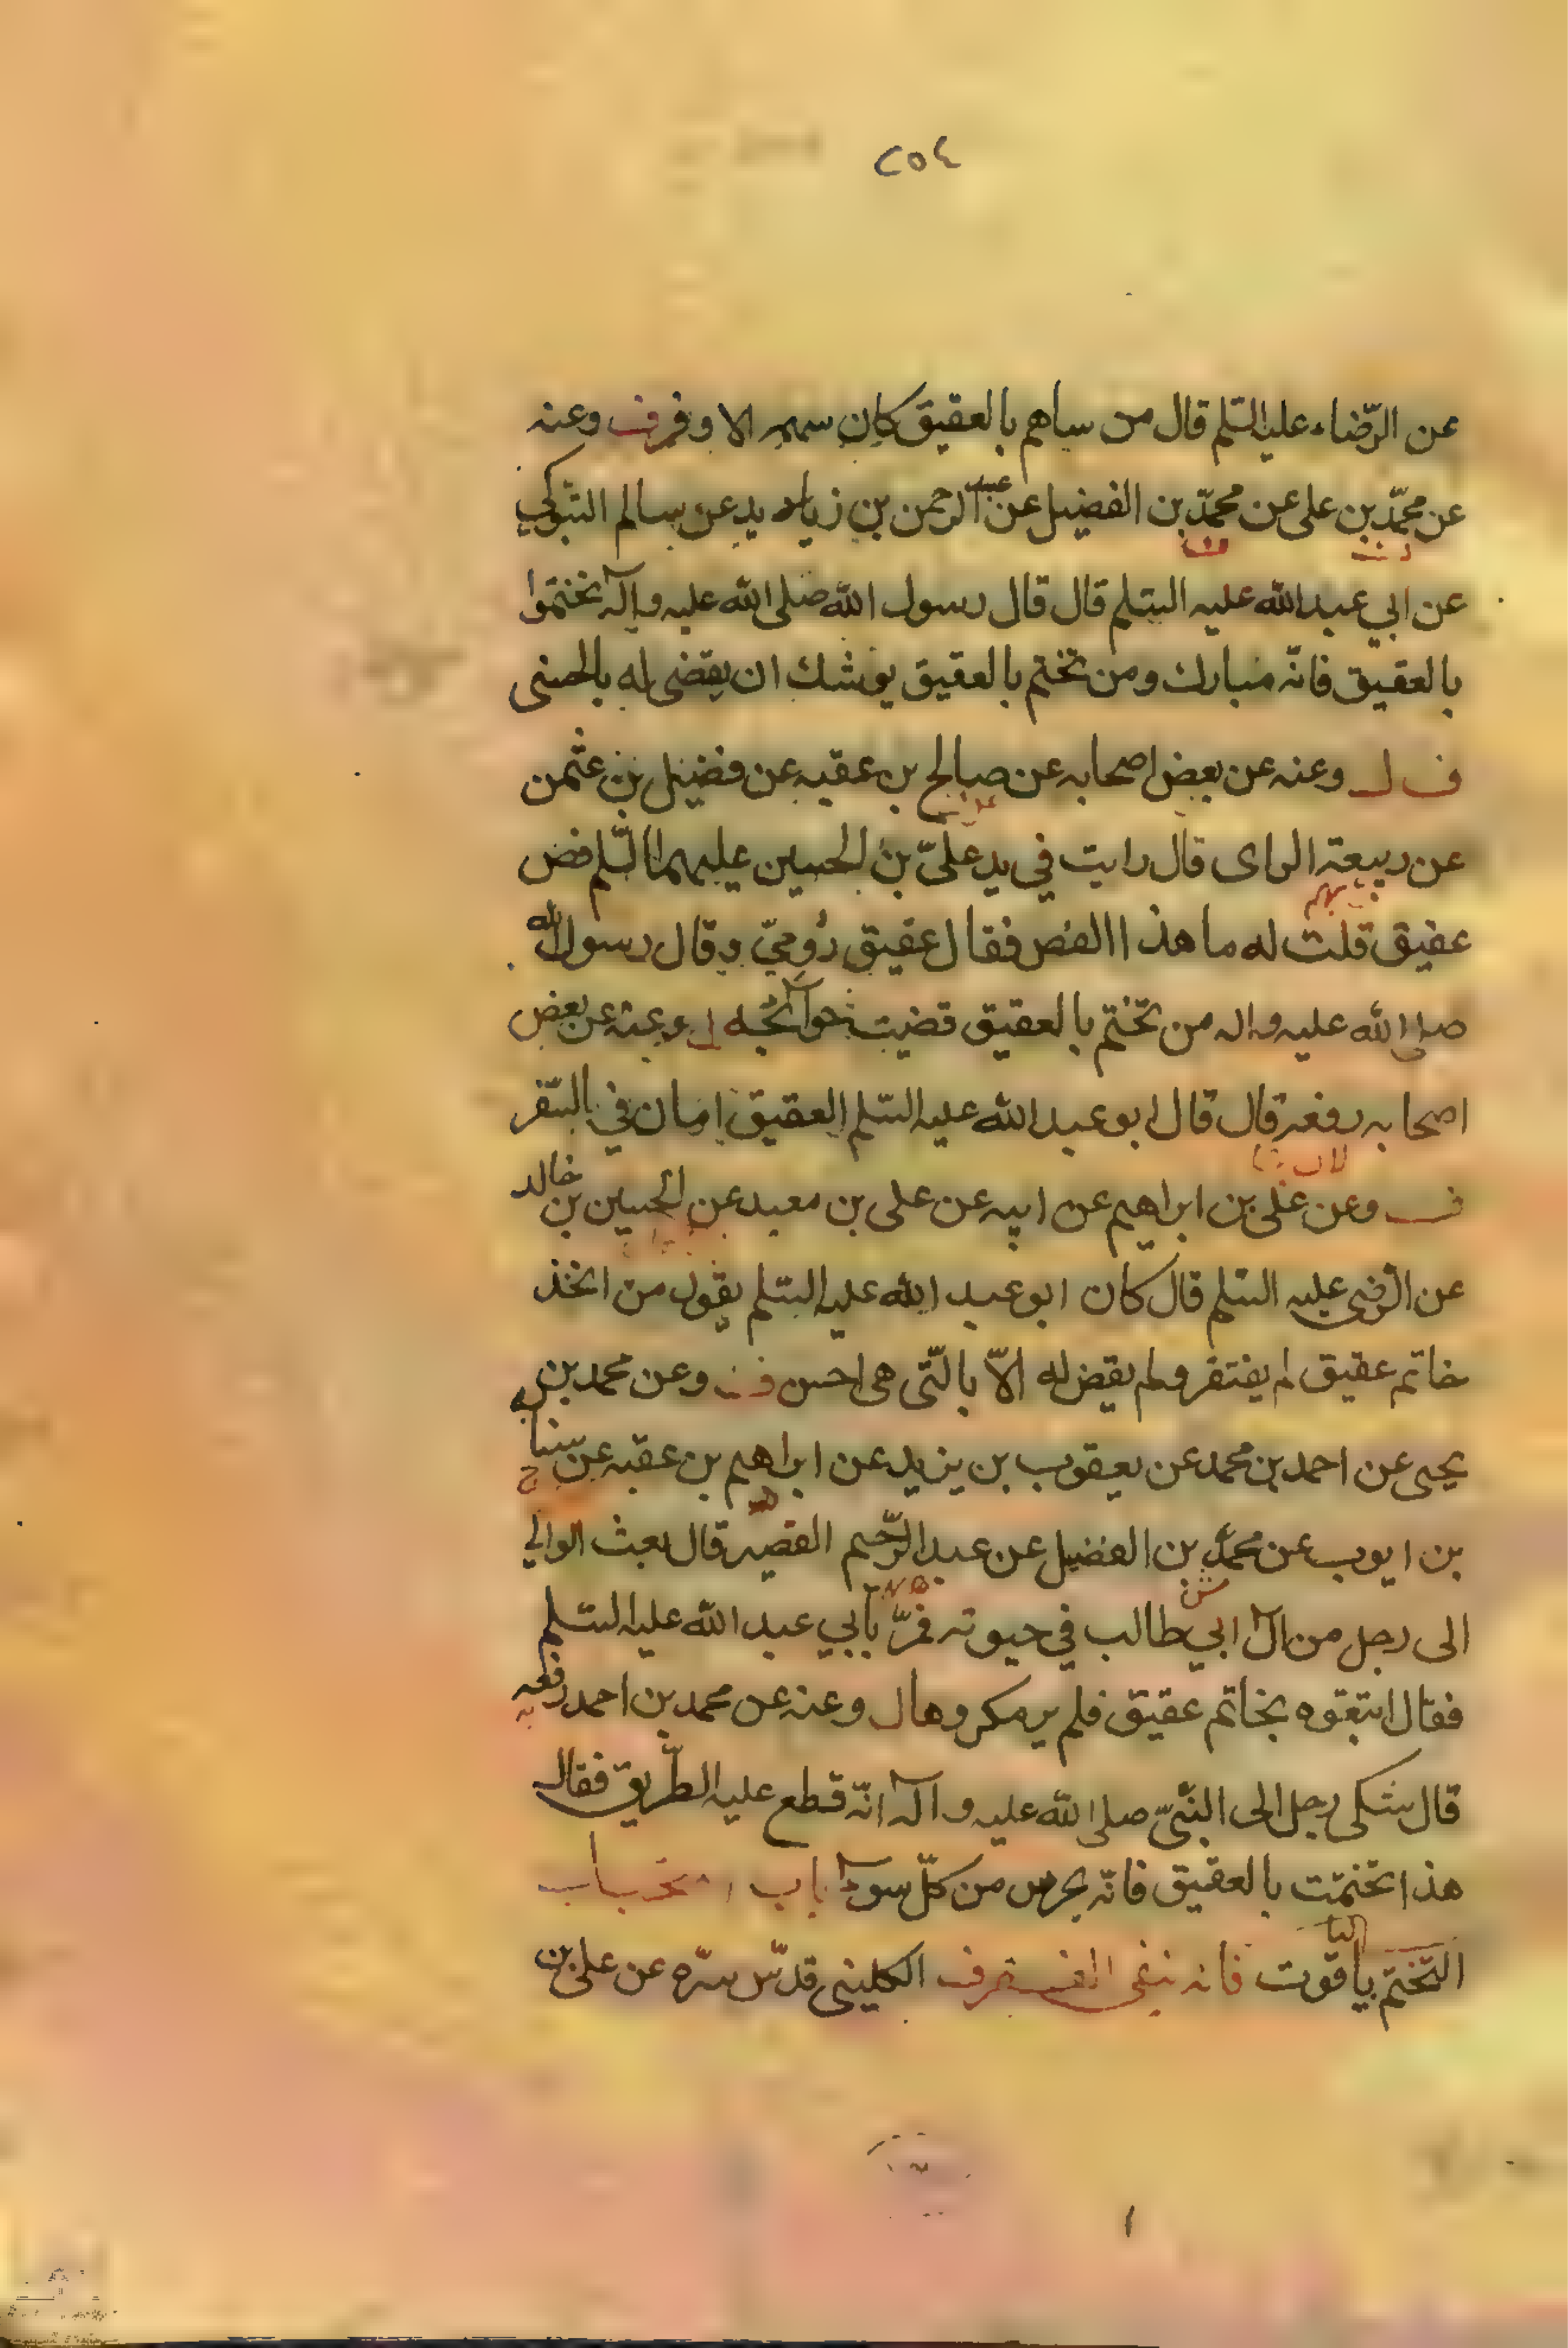 ٢٥٤
عن الرّضاء عليه السّلم قال من ساهم بالعقيق كان سهمه الاوفر ف وعنه
عن محمّد بن على عن محمّد بن الفضيل عن عبد الرحمن بن زياد يد عن سالم
عن ابي عبد الله عليه السّلم قال قال رسول الله صلى الله عليه وآله تختموا
بالعقيق فانّه مبارك ومن تختم بالعقيق يوشك ان يقضى له بالحسنى
ف ل وعنه عن بعض اصحابه عن صالح بن عقبه عن فضيل بن عثمن
عن ربيعة الراى قال رايت في يد علىّ بن الحسين عليهما السّلم فص
عقيق قلت له ما هذا الفص فقال عقيق رُوميّ وقال رسول الله
صلى الله عليه واله من تختم بالعقيق قضيت حوآئجه ل وعنه عن بعض
اصحابه رفعه قال قال ابو عبد الله عليه السّلم العقيق امان في السّفر
ف وعن على بن ابراهيم عن ابيه عن على بن معبد عن الحسين بن خالد
عن الرّضى عليه السّلم قال كان ابو عبد الله عليه السّلم يقول من اتخذ
خاتم عقيق لم يفتقر ولم يقض له الّا بالّتى هى احسن ف وعن محمد بن
يحيى عن احمد بن محمد عن يعقوب بن يزيد عن ابراهيم بن عقبه عن سيابه
بن ايوب عن محمّد بن الفضيل عن عبد الرّحيم القصير قال بعث الوالي
الى رجل من آل ابي طالب في حيوته فمرّ بأبي عبد الله عليه السّلم
فقال اتبعوه بخاتم عقيق فلم ير مكروها ل وعنه عن محمد بن احمد رفعه
قال شكى رجل الى النّبىّ صلى الله عليه وآله انّه قطع عليه الطّريق فقال
هذا تختمت بالعقيق فانّه يحرس من كلّ سوء باب
التّختم بالياقوت فانه ينفى الفقر ف الكلينى قدّس سرّه عن على بن